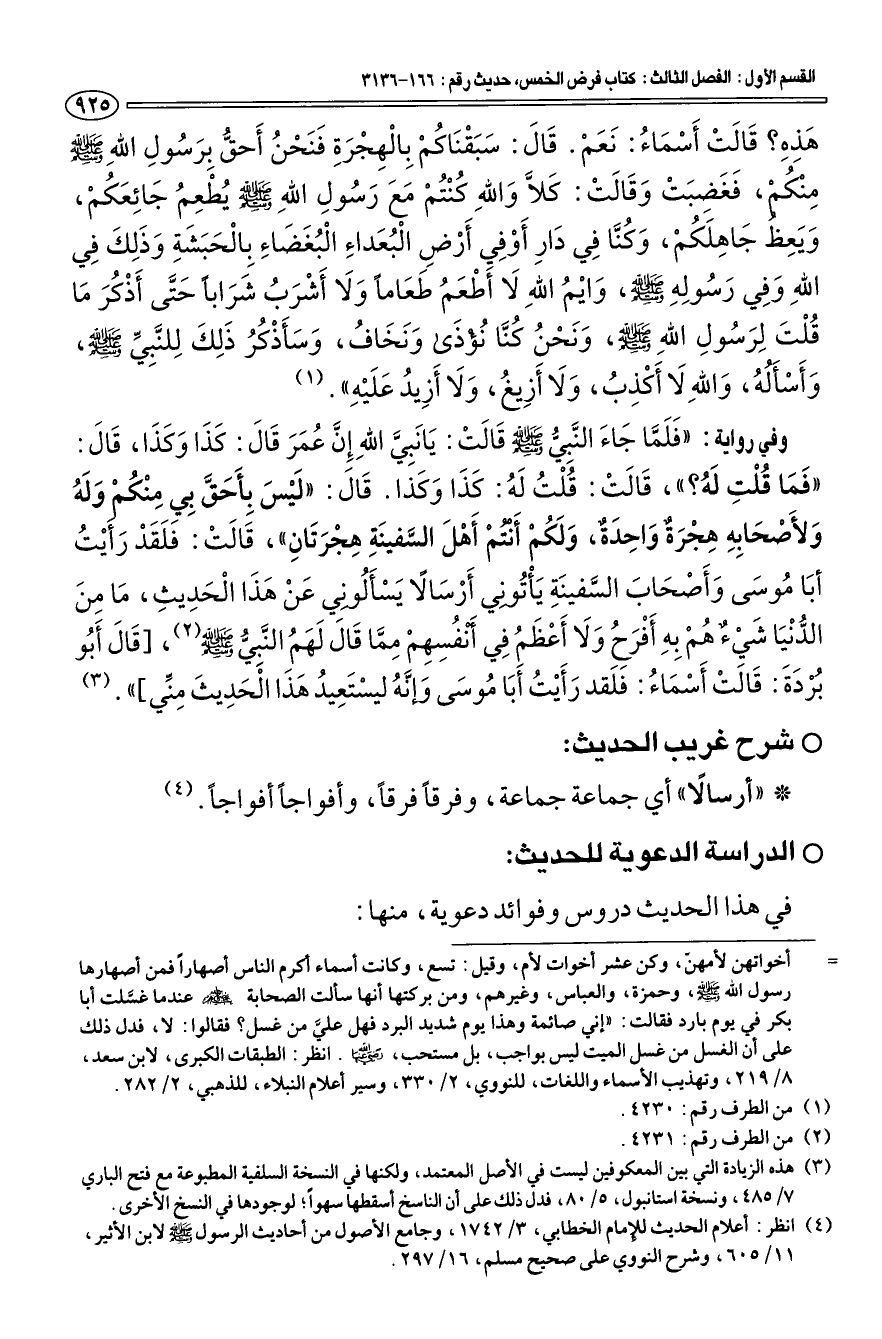 القسم الأول: الفصل الثالث: كتاب فرض الخمس، حديث رقم: ١٦٦-٣١٣٦
٩٢٥
هَذِهِ؟ قَالَتْ أَسْمَاءُ: نَعَمْ. قَالَ: سَبَقْنَاكُمْ بِالْهِجْرَةِ فَنَحْنُ أَحقُّ بِرَسُولِ اللهِ ﷺ
مِنْكُمْ، فَغَضِبَتْ وَقَالَتْ: كَلاَّ وَاللهِ كُنْتُمْ مَعَ رَسُولِ اللهِ ﷺ يُطْعِمُ جَائِعَكُمْ،
وَيَعِظُ جَاهِلَكُمْ، وَكُنَّا فِي دَارِ أَوْفِي أَرْضِ الْبُعَداءِ الْبُغَضَاءِ بِالْحَبَشَةِ وَذَلِكَ فِي
اللهِ وَفِي رَسُولِهِ ﷺ، وَايْمُ اللهِ لَا أَطْعَمُ طَعَاماً وَلَا أَشْرَبُ شَرَاباً حَتَّى أَذْكُرَ مَا
قُلْتَ لِرَسُولِ اللهِ ﷺ، وَنَحْنُ كُنَّا نُؤْذَىٰ وَنَخَافُ، وَسَأَذْكُرُ ذَلِكَ لِلنَّبِيِّ ﷺ،
وَأَسْأَلُهُ، وَاللهِ لَا أَكْذِبُ، وَلَا أَزِيغُ، وَلَا أَزِيدُ عَلَيْهِ». (١)
وفي رواية: «فَلَمَّا جَاءَ النَّبِيُّ ﷺ قَالَتْ: يَانَبِيَّ اللهِ إِنَّ عُمَرَ قَالَ: كَذَا وَكَذَا، قَالَ:
«فَمَا قُلْتِ لَهُ؟»، قَالَتْ: قُلْتُ لَهُ: كَذَا وَكَذَا. قَالَ: «لَيْسَ بِأَحَقَّ بِي مِنْكُمْ وَلَهُ
وَلأَصْحَابِهِ هِجْرَةٌ وَاحِدَةٌ، وَلَكُمْ أَنْتُمْ أَهْلَ السَّفينَةِ هِجْرَتَانِ»، قَالَتْ: فَلَقَدْ رَأَيْتُ
أبَا مُوسَى وَأَصْحَابَ السَّفينَةِ يَأْتُونِي أَرْسَالًا يَسْأَلُونِي عَنْ هَذَا الْحَدِيثِ، مَا مِنَ
الدُّنْيَا شَيْءٌ هُمْ بِهِ أَفْرَحُ وَلَا أَعْظَمُ فِي أَنْفُسِهِمْ مِمَّا قَالَ لَهُمُ النَّبِيُّ ﷺ(٢)، [قَالَ أَبُو
بُرْدَةَ: قَالَتْ أَسْمَاءُ: فَلَقد رَأَيْتُ أَبَا مُوسَى وَإِنَّهُ ليسْتَعِيدُ هَذَا الْحَدِيثَ مِنِّي]». (٣)
○ شرح غريب الحديث:
* «أرسالًا» أي جماعة جماعة، وفرقاً فرقاً، وأفواجاً أفواجاً. (٤)
○ الدراسة الدعوية للحديث:
في هذا الحديث دروس وفوائد دعوية، منها:
= أخواتهن لأمهنّ، وكن عشر أخوات لأم، وقيل: تسع، وكانت أسماء أكرم الناس أصهاراً فمن أصهارها
رسول الله ﷺ، وحمزة، والعباس، وغيرهم، ومن بركتها أنها سألت الصحابة ﷺ عندما غسَّلت أبا
بكر في يوم بارد فقالت: «إني صائمة وهذا يوم شديد البرد فهل عليَّ من غسل؟ فقالوا: لا، فدل ذلك
على أن الغسل من غسل الميت ليس بواجب، بل مستحب، رضي الله عنها. انظر: الطبقات الكبرى، لابن سعد،
٨/ ٢١٩، وتهذيب الأسماء واللغات، للنووي، ٢/ ٣٣٠، وسير أعلام النبلاء، للذهبي، ٢/ ٢٨٢.
(١) من الطرف رقم: ٤٢٣٠.
(٢) من الطرف رقم: ٤٢٣١.
(٣) هذه الزيادة التي بين المعكوفين ليست في الأصل المعتمد، ولكنها في النسخة السلفية المطبوعة مع فتح الباري
٧/ ٤٨٥، ونسخة استانبول، ٥/ ٨٠، فدل ذلك على أن الناسخ أسقطها سهواً؛ لوجودها في النسخ الأخرى.
(٤) انظر: أعلام الحديث للإمام الخطابي، ٣/ ١٧٤٢، وجامع الأصول من أحاديث الرسول ﷺ لابن الأثير،
١١/ ٦٠٥، وشرح النووي على صحيح مسلم، ١٦/ ٢٩٧.